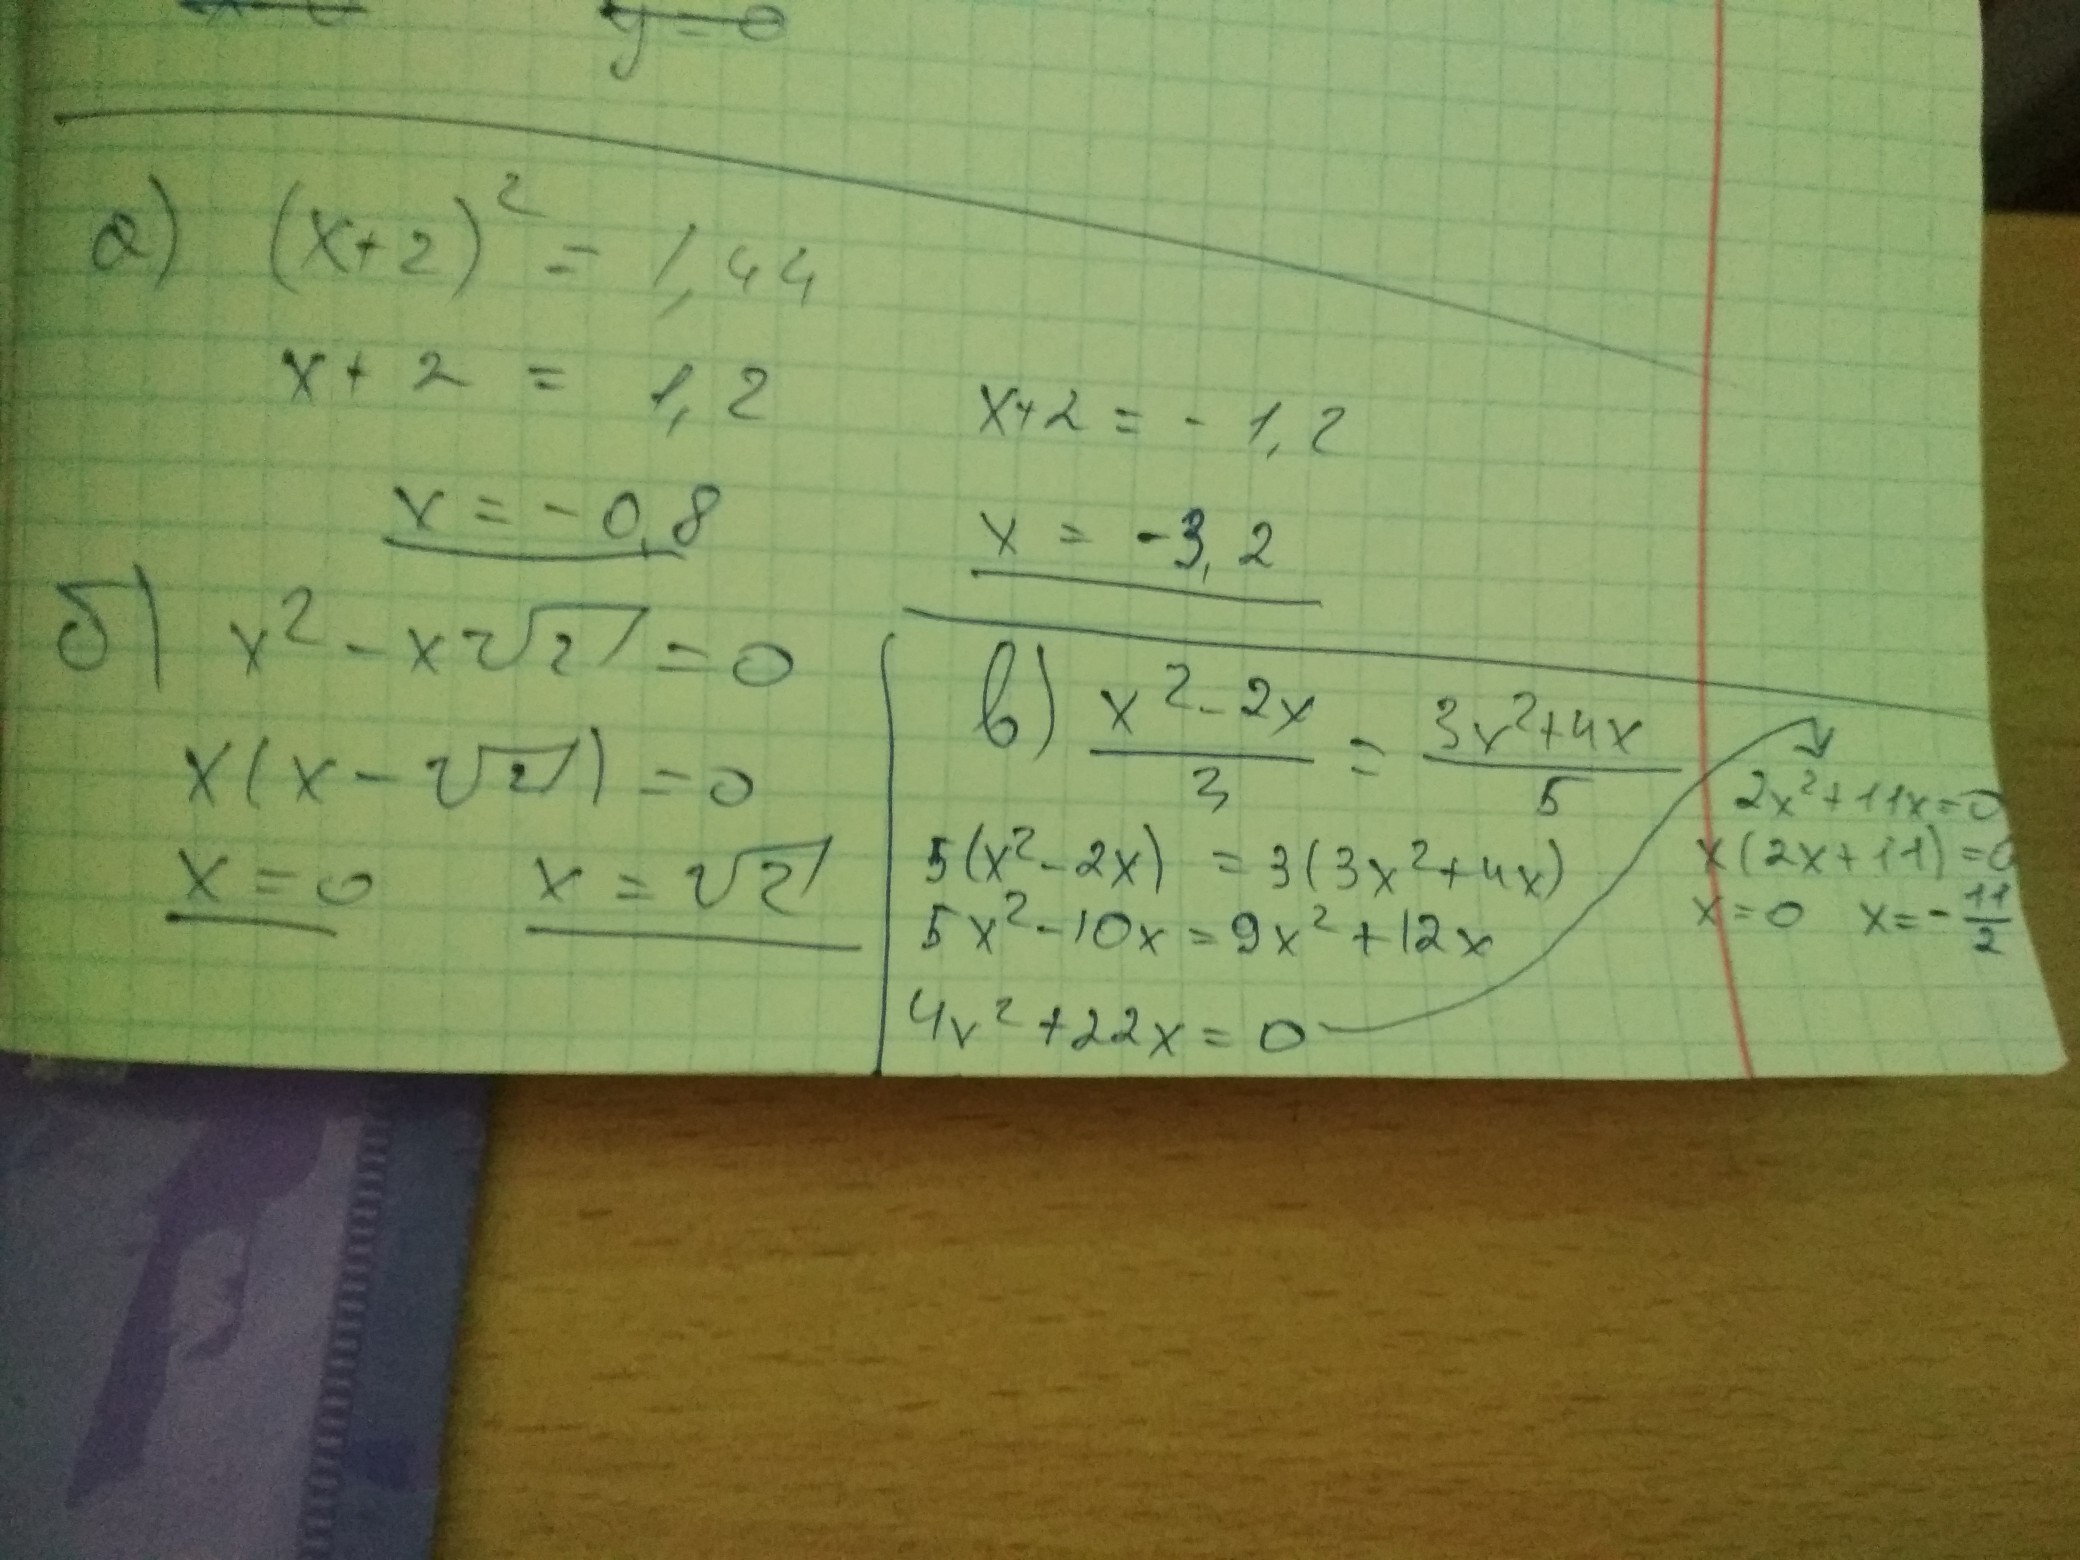 y=0
а) (x+2)² = 1,44
x+2 = 1,2
x+2 = -1,2
x = -0,8
x = -3,2
б) x² - x√2 = 0
x(x - √2) = 0
x = 0 x = √2
в) (x² - 2x)/3 = (3x² + 4x)/5
5(x² - 2x) = 3(3x² + 4x)
5x² - 10x = 9x² + 12x
4x² + 22x = 0
2x² + 11x = 0
x(2x + 11) = 0
x = 0 x = -11/2